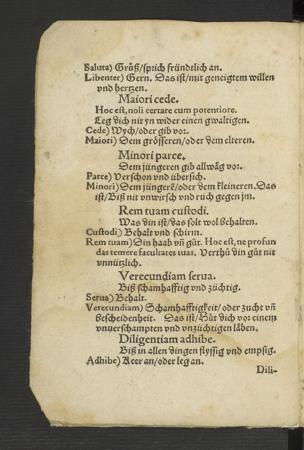 Saluta) Grüß/sprich fründtlich an.
Libenter) Gern. Das ist/mit geneigtem willen
vnd hertzen.
Maiori cede.
Hoc est, noli certare cum potentiore.
Leg dich nit yn wider einen gwaltigen.
Cede) Wych/oder gib vor.
Maiori) Dem grösseren/oder dem elteren.
Minori parce.
Dem jüngeren gib allwäg vor.
Parce) Verschon vnd übersich.
Minori) Dem jüngerē/oder dem kleineren. Das
ist/Biß nit vnwirsch vnd ruch gegen jm.
Rem tuam custodi.
Was din ist/das solt wol behalten.
Custodi) Behalt vnd schirm.
Rem tuam) Din haab vñ gůt. Hoc est, ne profun
das temere facultates tuas. Verthů din gůt nit
vnnützlich.
Verecundiam serua.
Biß schamhafftig vnd züchtig.
Serua) Behalt.
Verecundiam) Schamhafftigkeit/oder zucht vñ
Bescheidenheit. Das ist/Hüt dich vor einem
vnuerschampten vnd vnzüchtigen läben.
Diligentiam adhibe.
Biß in allen dingen flyssig vnd empsig.
Adhibe) Keer an/oder leg an.
Dili-